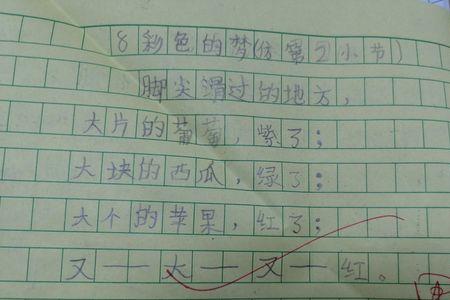 8 彩色的梦(仿第2小节)
脚尖滑过的地方，
大片的葡萄，紫了；
大块的西瓜，绿了；
大个的苹果，红了；
又—大—又—红。